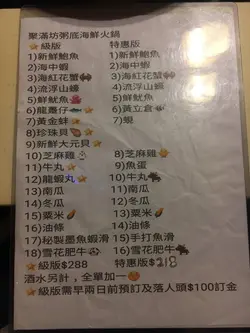 聚滿坊粥底海鮮火鍋
⭐級版 特惠版
1)新鮮鮑魚 1)新鮮鮑魚
2)海中蝦 2)海中蝦
3)海紅花蟹🦀 3)海紅花蟹🦀
4)流浮山蠔 4)流浮山蠔
5)鮮魷魚 5)鮮魷魚
6)龍躉仔⭐ 6)黃立倉
7)黃金蚌⭐ 7)蜆
8)珍珠貝⭐
9)新鮮大元貝⭐
10)芝麻雞 8)芝麻雞
11)牛丸 9)魚蛋
12)龍蝦丸⭐ 10)牛丸
13)南瓜 11)南瓜
14)冬瓜 12)冬瓜
15)粟米 13)粟米
16)油條 14)油條
17)秘製墨魚蝦滑 15)手打魚滑
18)雪花肥牛 16)雪花肥牛
⭐級版$288 特惠版$218
酒水另計，全單加一
⭐級版需早兩日前預訂及落人頭$100訂金